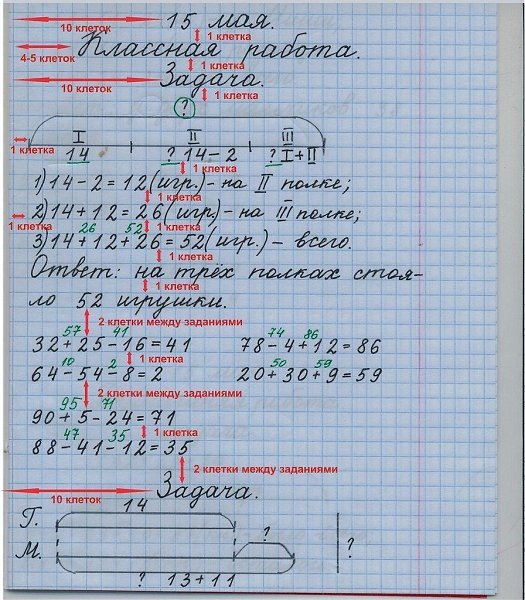 10 клеток 15 мая.
1 клетка
4-5 клеток Классная работа.
1 клетка
10 клеток Задача.
1 клетка
?
I II III
1 клетка
14 ? 14-2 ? I+II
1 клетка
1) 14-2=12(игр.)- на II полке;
1 клетка
2) 14+12=26(игр.)- на III полке;
1 клетка 26 52 1 клетка
3) 14+12+26=52(игр.)- всего.
1 клетка
Ответ: на трёх полках стоя-
1 клетка
ло 52 игрушки.
2 клетки между заданиями
57 41 74 86
32+25-16=41 78-4+12=86
1 клетка
10 2 50 59
64-54-8=2 20+30+9=59
2 клетки между заданиями
95 71
90+5-24=71
47 35 1 клетка
88-41-12=35
2 клетки между заданиями
10 клеток Задача.
14
Г.
?
М. ?
? 13+11